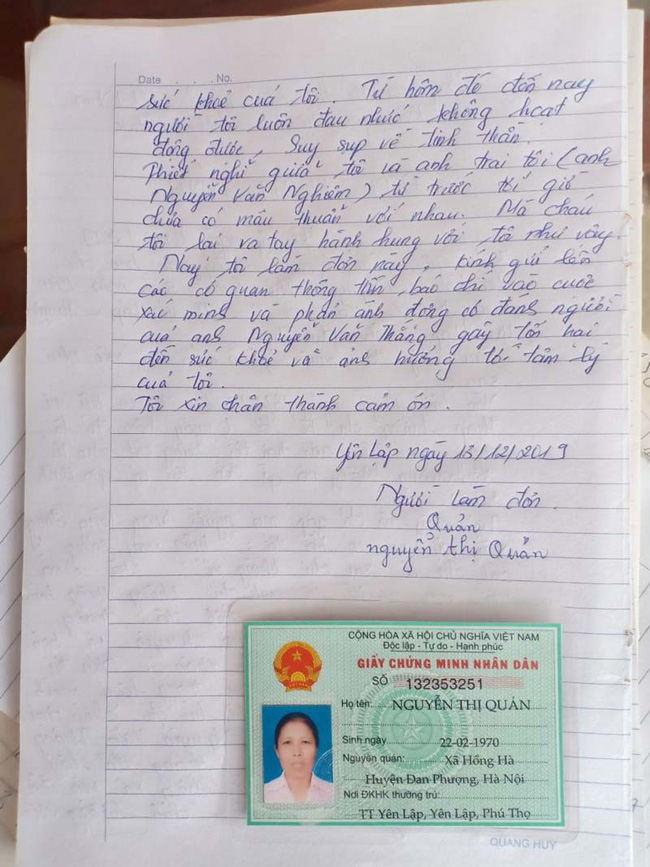 Date . . . . No.
sức khoẻ của tôi. Từ hôm đó đến nay
người tôi luôn đau nhức không hoạt
động được, suy sụp về tinh thần.
Thiết nghĩ giữa tôi và anh trai tôi (anh
Nguyễn Văn Nghiêm) từ trước tới giờ
chưa có mâu thuẫn với nhau. Mà cháu
tôi lại ra tay hành hung với tôi như vậy.
Nay tôi làm đơn này, kính gửi lên
các cơ quan thông tin, báo chí vào cuộc
xác minh và phản ánh động cơ đánh người
của anh Nguyễn Văn Thắng gây tổn hại
đến sức khoẻ và ảnh hưởng tới tâm lý
của tôi.
Tôi xin chân thành cảm ơn.
Yên Lập ngày 13/12/2019
Người làm đơn
Quản
nguyễn thị Quản
CỘNG HÒA XÃ HỘI CHỦ NGHĨA VIỆT NAM
Độc lập - Tự do - Hạnh phúc
GIẤY CHỨNG MINH NHÂN DÂN
SỐ 132353251
Họ tên: NGUYỄN THỊ QUẢN
Sinh ngày 22-02-1970
Nguyên quán: Xã Hồng Hà
Huyện Đan Phượng, Hà Nội
Nơi ĐKHK thường trú:
TT Yên Lập, Yên Lập, Phú Thọ
QUANG HUY